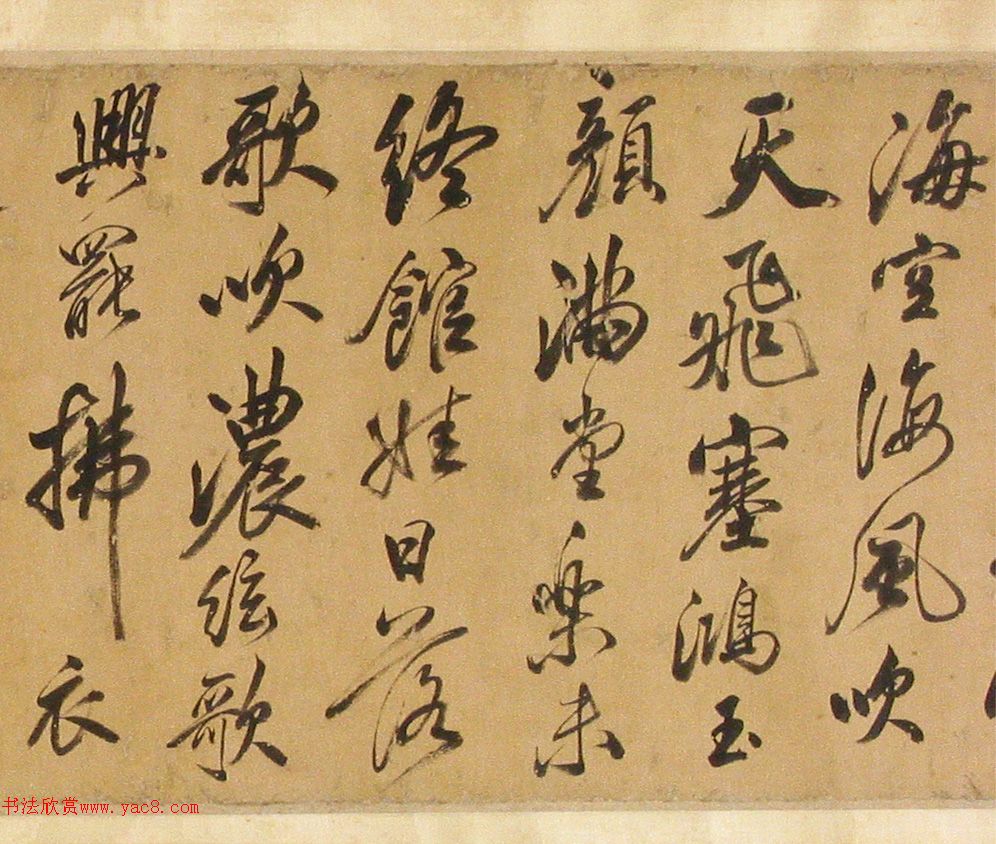 海空海風吹
天飛塞鴻玉
顏滿堂樂未
終館娃日落
歌吹濃絃歌
興罷拂衣
书法欣赏www.yac8.com